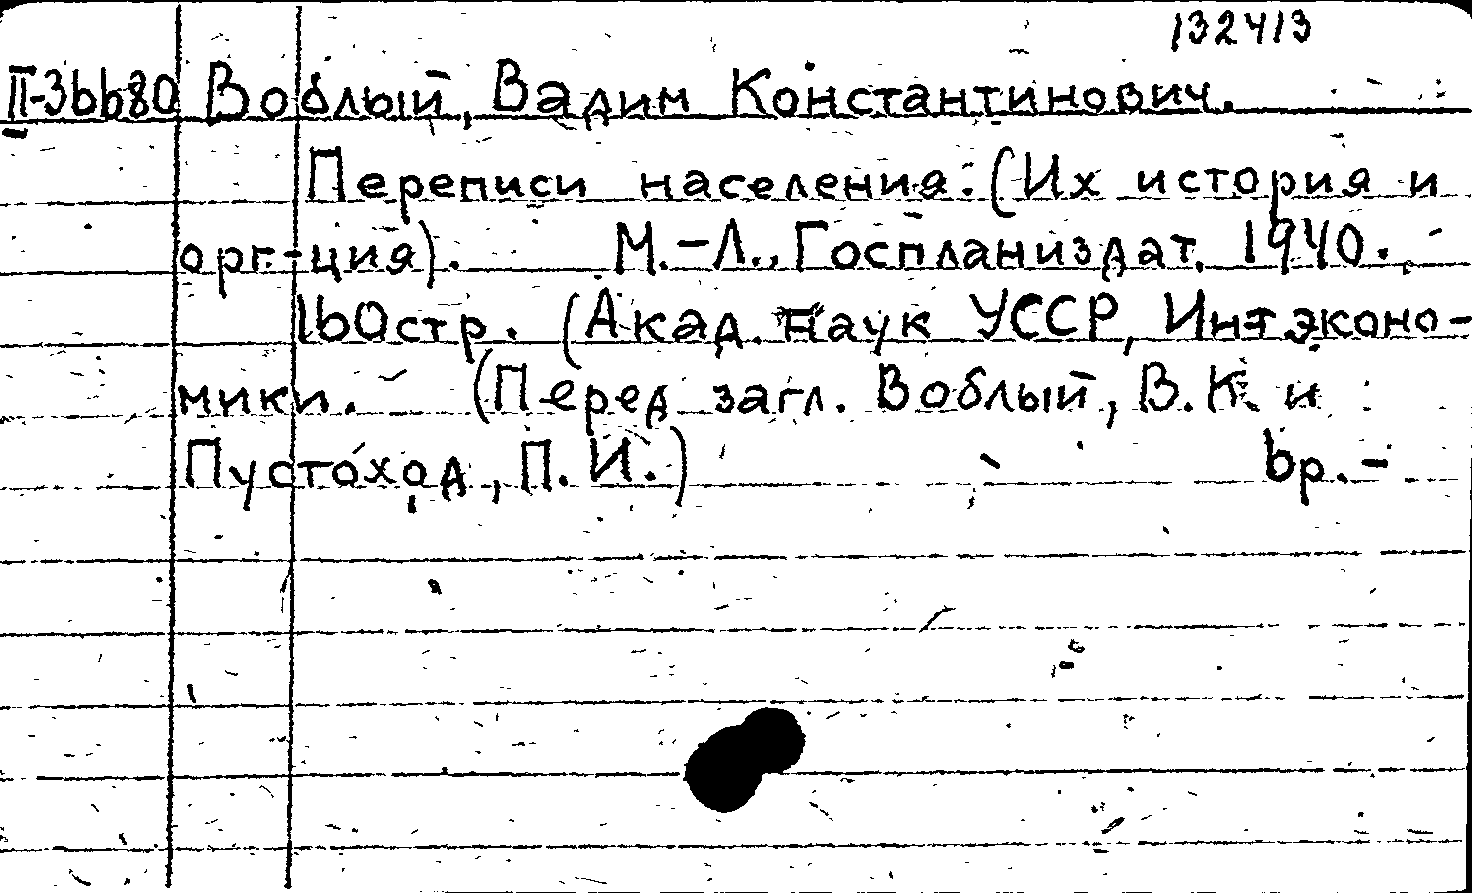 132413
II-36680 Воблый, Вадим Константинович.
Переписи населения. (Их история и
орг-ция). М.-Л., Госпланиздат, 1940.
160стр. (Акад. Наук УССР, Ин-т эконо-
мики. (Перед загл. Воблый, В.К. и
Пустоход, П. И.) 6р.-